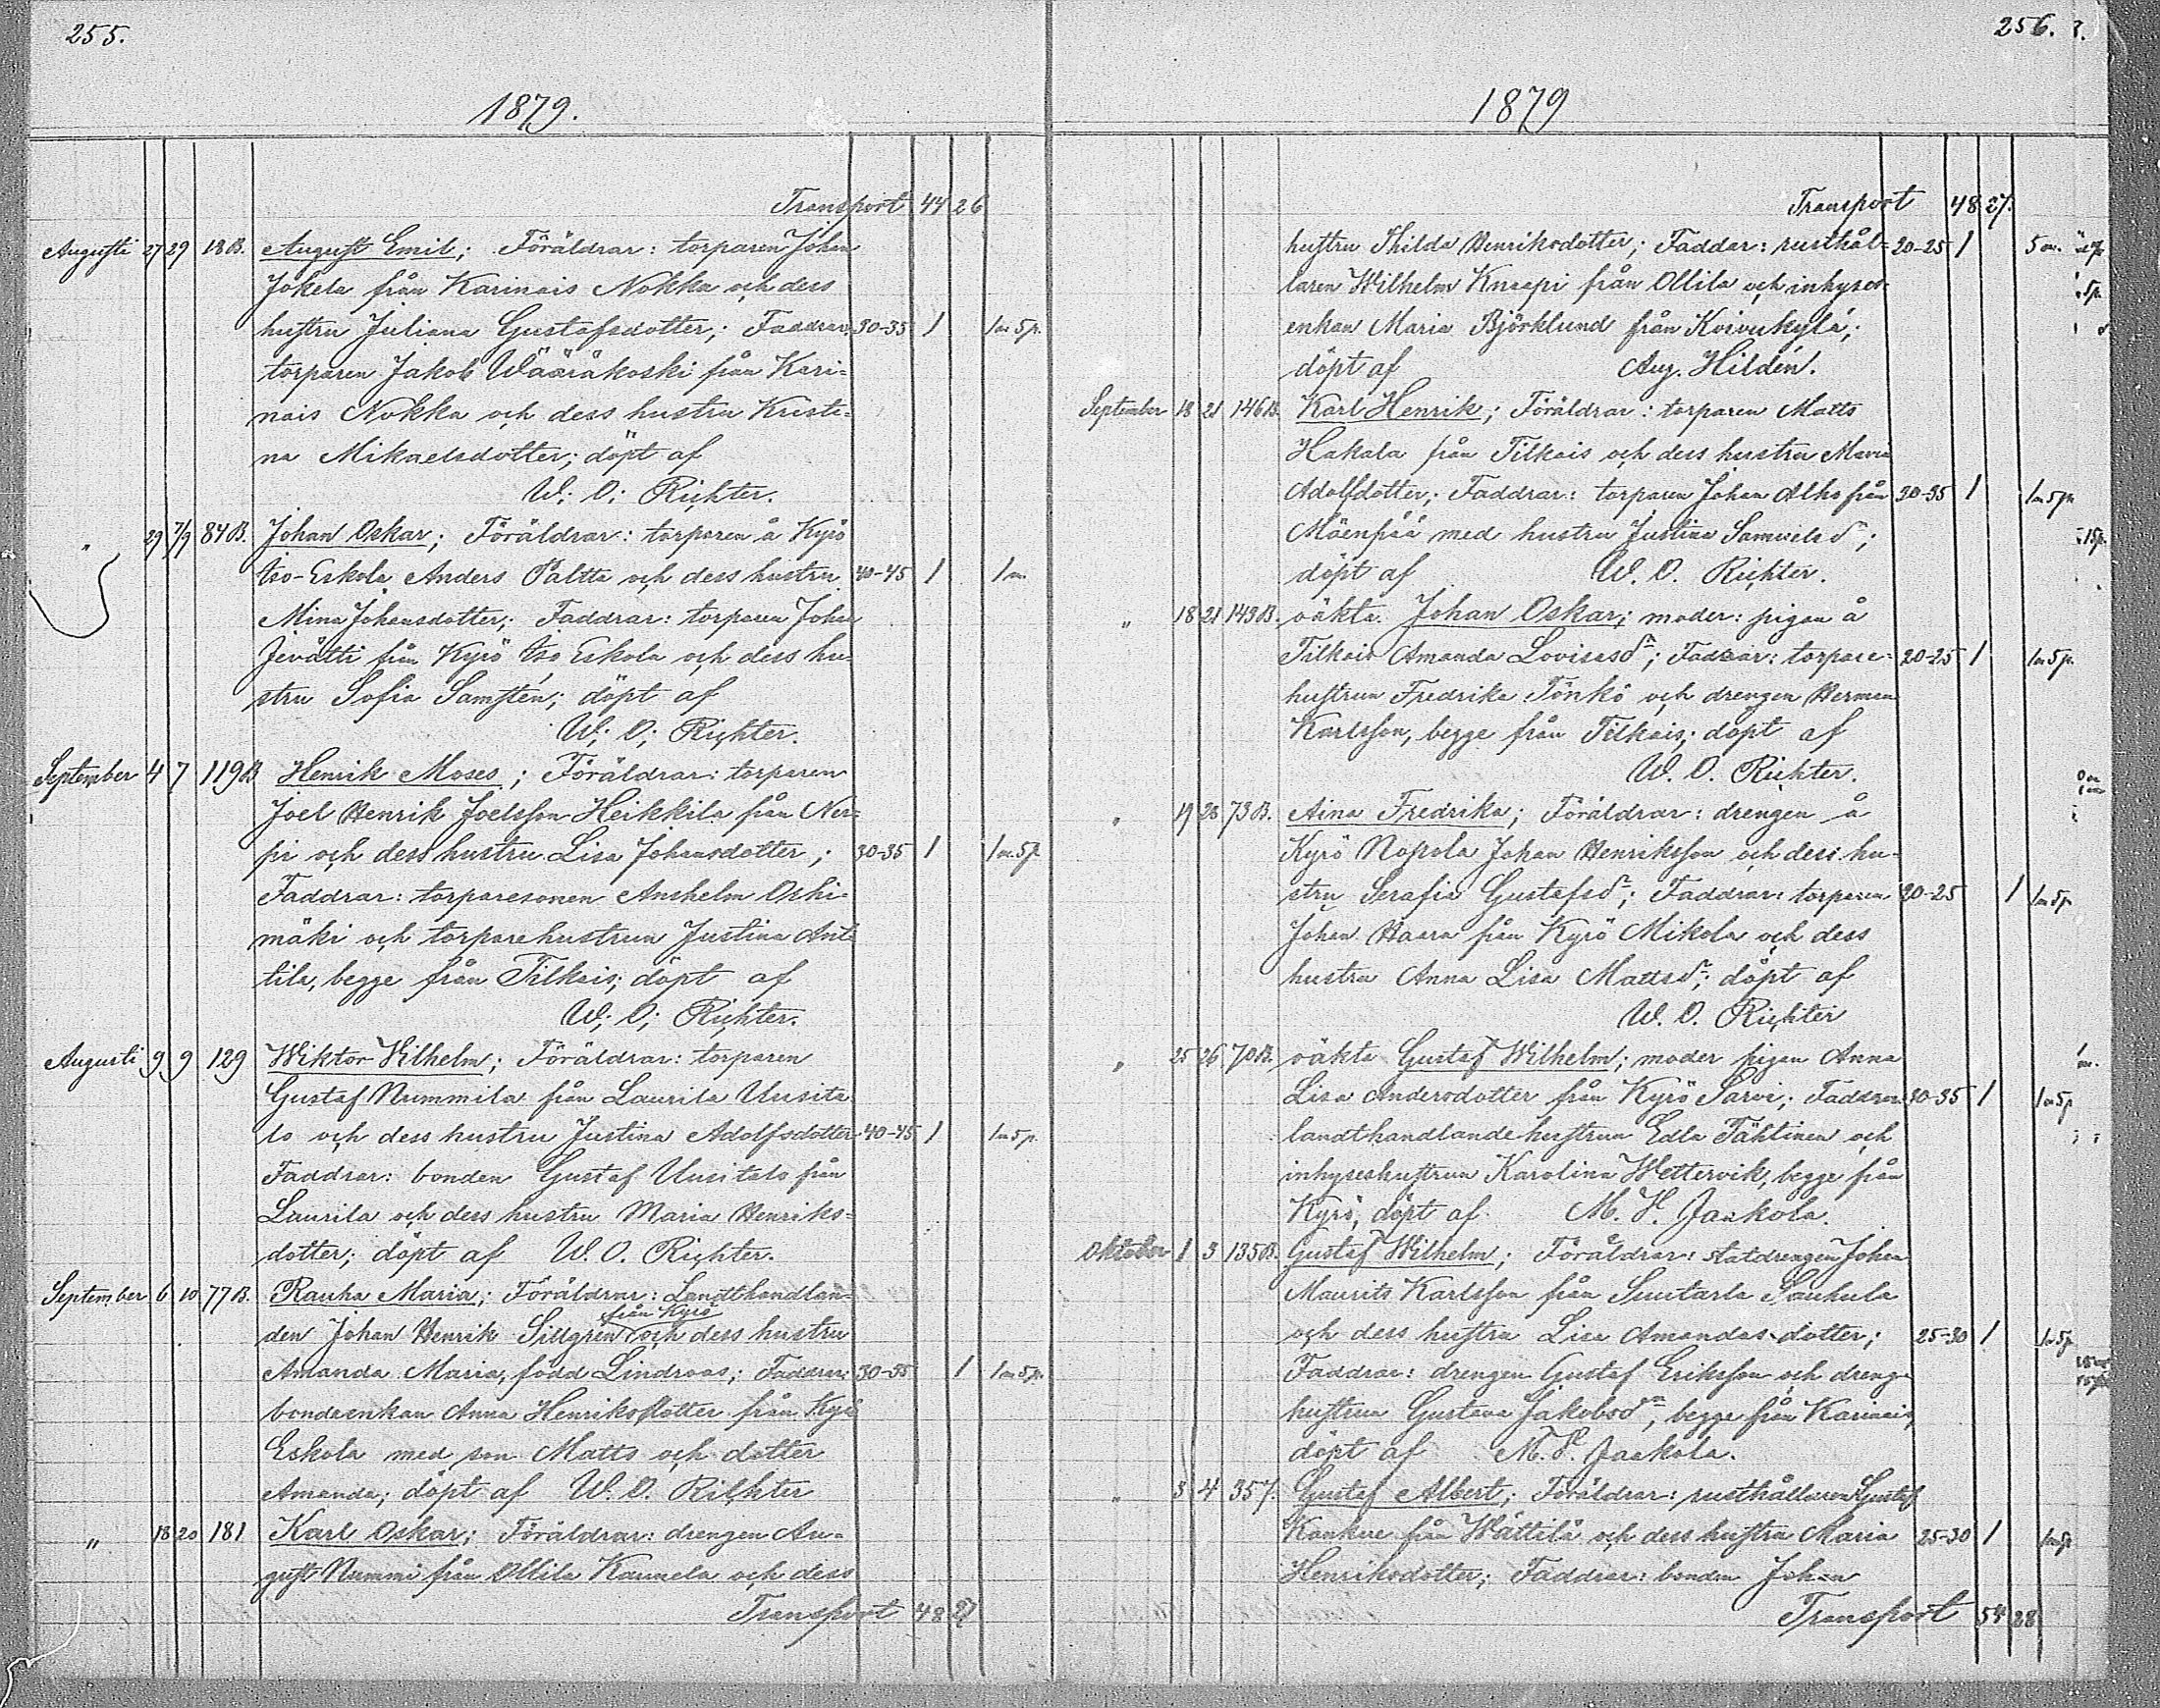 255.
1879.
Transport 44 26
Augusti 27 29 18 B. August Emil; Föräldrar: torparen Johan
Jokela från Karinais Nokka och dess
hustru Juliana Gustafsdotter; Faddrar: 30-35 1 1 m 5 p.
torparen Jakob Wääräkoski från Kari-
nais Nokka och dess hustru Kristi-
na Mikaelsdotter; döpt af
W; O; Richter.
" 29 7/9 84 B. Johan Oskar; Föräldrar: torparen å Kyrö
Iso-Eskola Anders Paltta och dess hustru 40-45 1 1 m.
Mina Johansdotter; Faddrar: torparen Johan
från Kyrö Iso Eskola och dess hu-
stru Sofia Samstén; döpt af
W; O; Richter.
September 4 7 119 B Henrik Moses; Föräldrar: torparen
Joel Henrik Joelsson Heikkilä från Ner-
pi och dess hustru Lisa Johansdotter; 30-35 1 1 m. 5 p.
Faddrar: torparesonen Anshelm
mäki och torparehustrun Justina Ant-
tila, begge från Tilkais; döpt af
W; O; Richter.
Augusti 9 9 129 Wiktor Vilhelm; Föräldrar: torparen
Gustaf Nummila från Laurila Uusita-
lo och dess hustru Justina Adolfsdotter 40-45 1 1 m 5 p.
Faddrar: bonden Gustaf Uusitalo från
Laurila och dess hustru Maria Henriks-
dotter; döpt af W. O. Richter.
September 6 10 77 B. Rauha Maria; Föräldrar: Landthandlan-
från Kyrö
den Johan Henrik Sillgrén och dess hustru
Amanda Maria, född Lindroos; Faddrar: 30-35 1 1 m 5 p.
bondeenkan Anna Henriksdotter från Kyrö
Eskola med son Matts och dotter
Amanda; döpt af W. O. Richter
" 18 20 181 Karl Oskar; Föräldrar: drengen Au-
gust Nummi från Ollila Kaunela och dess
Transport 48 27
256.
1879
Transport 48 27.
hustru Thilda Henriksdotter; Faddar: rusthål- 20-25 1
laren Wilhelm Knaapi från Ollila och inhyses-
enkan Maria Björklund från Koivukylä;
döpt af Aug. Hildén.
September 18 21 146 B. Karl Henrik; Föräldrar: torparen Matts
Hakala från Tilkais och dess hustru Maria
Adolfdotter; Faddrar: torparen Johan Alho från 30-35 1 1 m 5 p.
Mäenpää med hustru Justina Samuelsdr;
döpt af W. O. Richter.
" 18 21 143 B. oäkta. Johan Oskar; moder: pigan å
Tilkais Amanda Lovisasdr; Faddrar: torpare- 20-25 1 1 m 5 p.
hustrun Fredrika Tönkö och drengen Herman
Karlsson, begge från Tilkais; döpt af
W. O. Richter.
" 19 28 73 B. Aina Fredrika; Föräldrar: drengen å
Kyrö Nopola Johan Henriksson och dess hu-
stru Serafia Gustafsdr; Faddrar: torparen 20-25 1 1 m 5 p.
Johan Haara från Kyrö Mikola och dess
hustru Anna Lisa Mattsdr; döpt af
W. O. Richter
" 25 26 70 B. oäkta Gustaf Wilhelm; moder pigan Anna
Lisa Andersdotter från Kyrö Sarvi; Faddrar 30-35 1 1 m 5 p
landthandlandehustrun Edla Tähtinen och
inhyseshustrun Karolina Wettervik, begge från
Kyrö; döpt af M. H. Jaakola.
Oktober 1 3 135 B. Gustaf Wilhelm; Föräldrar: statdrengen Johan
Maurits Karlsson från Suutarla Sauhula
och dess hustru Lisa Amandas dotter; 25-30 1 1 m 5 p
Faddrar: drengen Gustaf Eriksson och drenge-
hustrun Gustava Jakobsdr, begge från Karinais;
döpt af M. H. Jaakola.
" 3 4 357. Gustaf Albert; Föräldrar: rusthållaren Gustaf
Kankare från Wättilä och dess hustru Maria 25-30 1
Henriksdotter; Faddrar: bonden Johan
Transport 54 28